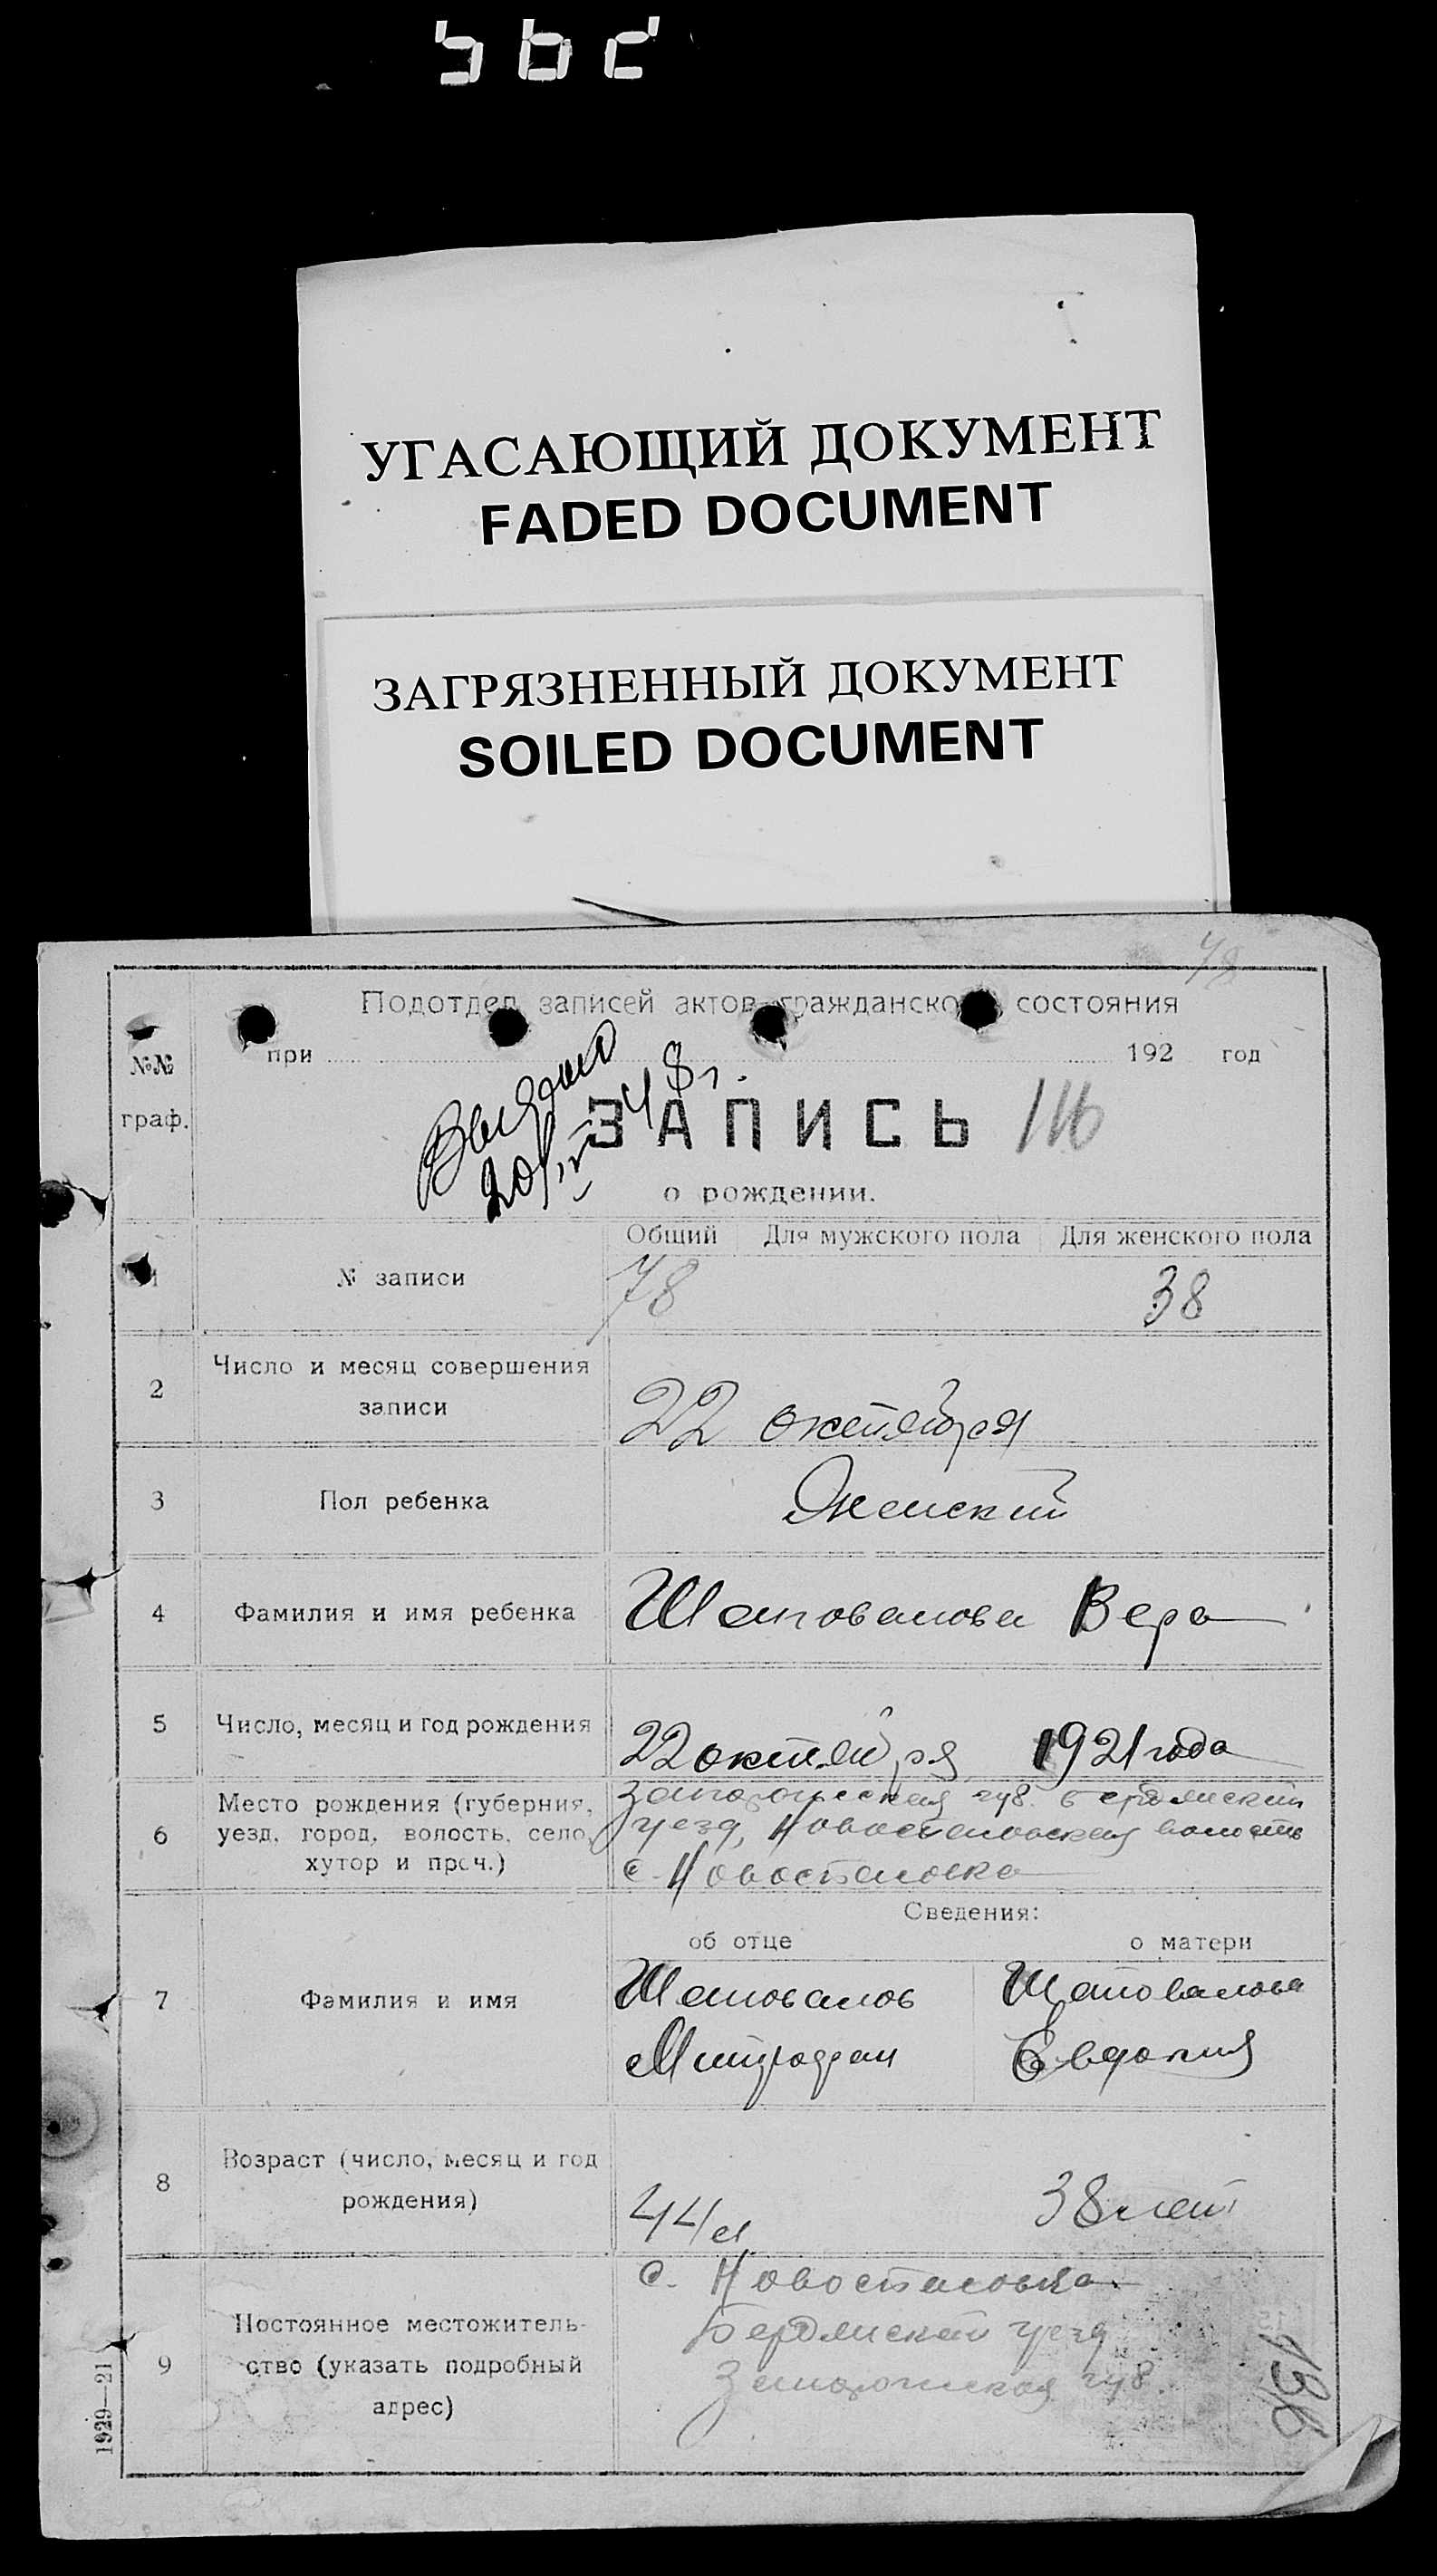 УГАСАЮЩИЙ ДОКУМЕНТ
FADED DOCUMENT
ЗАГРЯЗНЕННЫЙ ДОКУМЕНТ
SOILED DOCUMENT
78
Подотдел записей актов гражданского состояния
№№ граф.
при 192 год
Выдано
20/IV 48г.
ЗАПИСЬ 116
о рождении.
Общий Для мужского пола Для женского пола
1 № записи 78 38
2 Число и месяц совершения
записи
22 октября
3 Пол ребенка Женский
4 Фамилия и имя ребенка Шаповалова Вера
5 Число, месяц и год рождения 22 октября 1921 года
6 Место рождения (губерния,
уезд, город, волость, село,
хутор и проч.)
Запорожская губ. Бердянский
уезд, Новоспасовская волость
с. Новоспасовка
Сведения:
об отце о матери
7 Фамилия и имя
Шаповалов Шаповалова
Митрофан Евдокия
8 Возраст (число, месяц и год
рождения)
44 л 38 лет
9 Постоянное местожитель-
ство (указать подробный
адрес)
с. Новоспасовка
Бердянский уезд
Запорожская губ.
136
1929—21